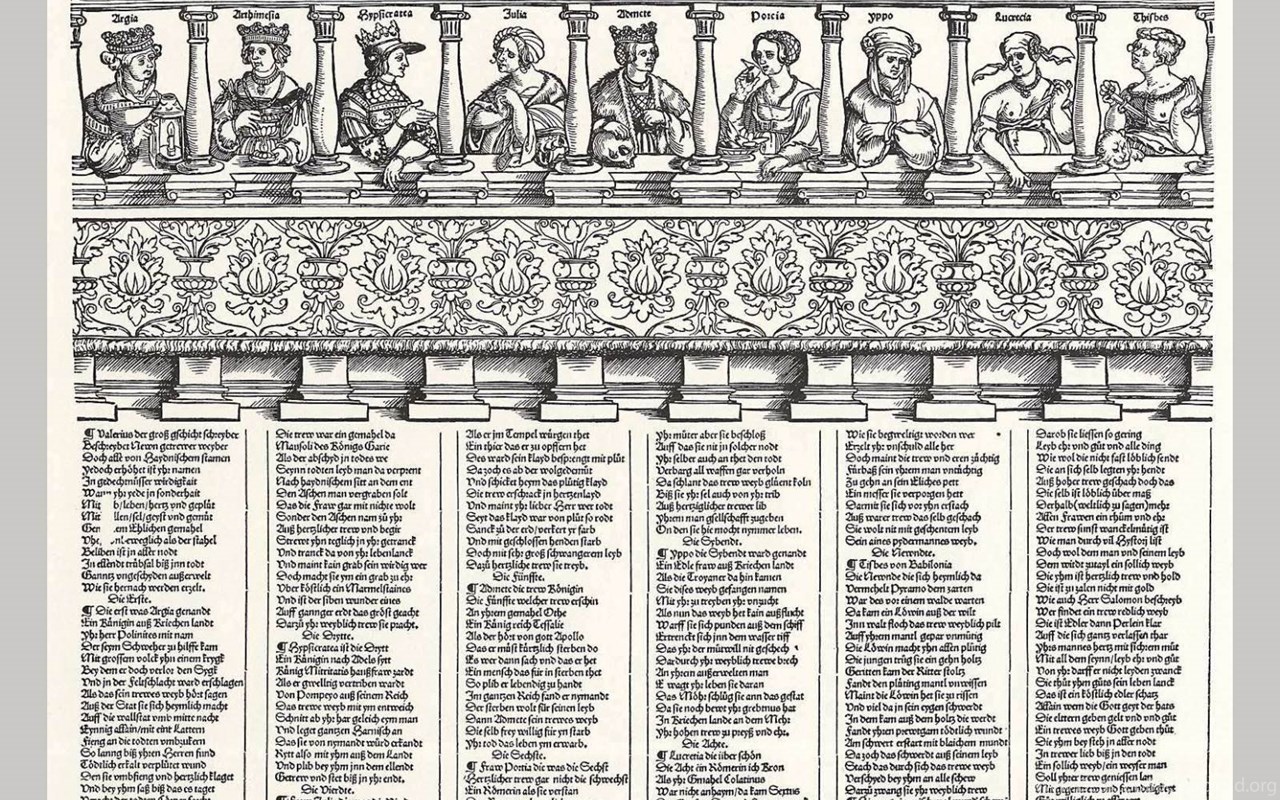 Argia
Arthimesia
Hypsicratea
Julia
Admete
Porcia
Yppo
Lucrecia
Thisbes
¶ Valerius der groß gschicht schreyber
Beschreybet Newn getrewer weyber
Doch alle von Haydnischem stamen
Yedoch erhöhet ist yhr namen
In gedechtnüsser wirdigkait
yhr yede jn sonderhait
Mit leben/hertz vnd geplüt
Mit sel/geyst vnd gemüt
Ehlichen gemahel
als der stahel
Beliben ist jn aller nodt
In ellendt trübsal biß jnn todt
Gantz vngeschyden außerwelt
Wie sie hernach werden erzelt.
Die Erste.
¶ Die erst was Argia genandt
Ein Künigin auß Kriechen landt
Yhr herr Polinites mit nam
Der seym Schweher zu hilffe kam
Mit grossem volck yhn einem krygk
Bey dem er doch verlor den Sygk
Vnd jn der Felschlacht ward erschlagen
Als das sein trewes weyb hört sagen
Auß der Stat sie sich heymlich macht
Auff die wallstat vmb mitte nacht
Eynnig allain/mit eine Lattern
Fieng an die todten vmbzukern
So lanng biß yhren Herren fund
Tödtlich erkalt verplütet wund
Den sie vmbfieng vnd hertzlich klaget
Vnd bey yhm saß biß das es taget
Die trew war ein gemahel da
Mausoli des Königs Carie
Als der abschyd jn todes we
Seynn todten leyb man da verprent
Nach haydnischem sitt an dem ent
Den Aschen man vergraben solt
Das die Fraw gar mit nichte wolt
Sonder den Aschen nam zu yhr
Auß hertzlicher trew vnd begir
Strewt yhn teglich jn yhr getranck
Vnd tranck da von yhr lebenlanck
Vnd maint kain grab sein wirdig wer
Doch macht sie ym ein grab zu ehr
Vber köstlich ein Marmelstaines
Vnd ist der siben wunder eines
Auff gannger erdt das groß geacht
Dartzu yhr weyblich trew sie pracht.
Die Drytte.
¶ Hypsicratea ist die Dryt
Ein Künigin nach Adels syt
König Mitritatis haußfraw zardt
Als er gwelltig vertriben wardt
Von Pompeyo auß seinem Reich
Das trewe weyb mit ym entweich
Schnitt ab yhr har geleich eym man
Vnd leget gannzen Harnisch an
Das sie von nymandt würd erkandt
Rytt also mit yhm auß dem Landt
Vnd plib bey yhm jnn dem ellendt
Getrew vnd stet biß jn yhr endt.
Die Vierdte.
Als er jm Tempel würgen thet
Ein thier das er zu opffern het
Des ward sein klayd besprengt mit plüt
Da zoch es ab der wolgedemüt
Vnd schicket heym das plütig klayd
Die trew erschrack jn hertzenlayd
Vnd maint yhr lieber Herr wer todt
Seyt das klayd war von plüt so rodt
Sanck zu der erd/verkert yr farb
Vnd mit geschlossen henden starb
Doch mit sehr groß schwangerem leyb
Dazu hertzliche trew sie treyb.
Die Fünffte.
¶ Admete die trew Königin
Die Fünffte welcher trew erschin
An yhrem gemahel Othe
Ein König reich Tessalie
Als der hört von gott Apollo
Das er müst kürtzlich sterben do
Es wer dann sach vnd das er het
Ein mensch das für in sterben thet
So plib er lebendig zu handt
Im gantzen Reich fand er nymandt
Der sterben wolt für seinen leyb
Dann Admete sein trewes weyb
Die selb frey willig für yn starb
Yhr tod das leben ym erwarb.
Die Sechste.
¶ Fraw Portia die was die Sechst
Hertzlicher trew gar nicht die schwechst
Ein Römerin als sie verstan
Yhr müter aber sie beschloß
Auff das sie nit jn solcher nodt
Yhr selber auch an thet den todt
Verbarg all waffen gar verholn
Da schlant das trew weyb glüent koln
Biß sie yhr sel auch von yhr trib
Auß hertziglicher trewer lib
Yhrem man gsellschafft zugeben
On den sie hie mocht nymmer leben.
Die Sybendt.
¶ Yppo die Sybendt ward genandt
Ein Edle fraw auß Kriechen landt
Als die Troyaner da hin kamen
Sie dises weyb gefangen namen
Mit yhr zu treyben yhr vnzucht
Als nun das weyb het kain außflucht
Warff sie sich punden auß dem schiff
Ertrenckt sich jnn dem wasser tiff
Das yhr der mütwill nit geschech
Dardurch yhr weyblich trewe brech
An yhrem außerwelten man
E wagt yhr leben sie daran
Das Möhr schlüg sie ann das gestat
Da sie noch bewet yhr grebnus hat
In Kriechen lande an dem Mehr
Yhr hohen trew zu preyß vnd ehr.
Die Achte.
¶ Lucretia die über schön
Die Acht ein Römerin ich kron
Als yhr Gmahel Colatinus
War nicht anhaym/da kam Sextus
Wie sie begweltigt worden wer
Ertzelt yhr vnschuld alle her
Doch maint die trew vnd eren züchtig
Fürbaß sein yhrem man vntüchtig
Zu gehn an sein Eliches pett
Ein messer sie verporgen hett
Darmit sie sich vor yhn erstach
Auß warer trew das selb geschach
Sie wolt nit mit geschentem leyb
Sein aines pydermannes weyb.
Die Newndte.
¶ Tisbes von Babilonia
Die Newndte die sich heymlich da
Vermehelt Pyramo dem zarten
War des vor einem walde warten
Da kam ein Löwin auß der wilt
Inn walt floch das trew weyblich pilt
Auff yhrem mantl gepar vnmütig
Die Löwin macht yhn allen plütig
Die jungen trüg sie ein gehn holtz
Geritten kam der Ritter stoltz
Fandt den plüting mantl vnwissen
Maint die Löwin het sie zu rissen
Vnd viel da jn sein eygen schwerdt
In dem kam auß dem holtz die werdt
Fandt yhren prewtgam tödlich wundt
Am schwert erstart mit blaichem mundt
Da zoch das schwerdt auß seinem leyb
Stach das durch sich das trewe weyb
Verschyed bey yhm an alle schew
Dartzu zwang sie yhr weyblich trew
Darob sie liessen so gering
Leyb ehr vnd güt vnd alle ding
Wie wol die nicht fast löblich sendt
Die an sich selb legten yhr hendt
Auß hoher trew geschach doch das
Die selb ist löblich über maß
Derhalb (weltlich zu sagen) mehr
Allen Frawen ein rhüm vnd ehr
Der trew sunst wanckelmütig ist
Wie man durch vil Hystori list
Doch wol dem man vnd seinem leyb
Dem wirdt zutayl ein sollich weyb
Die yhm ist hertzlich trew vnd hold
Die ist zu zalen nicht mit gold
Wie auch Herr Salomon beschreyb
Wer findet ein trew redlich weyb
Die ist Edler dann Perlein klar
Auff die sich gantz verlassen thar
Yhs mannes hertz mit sichrem müt
Mit all dem seynn/leyb ehr vnd güt
Von yhr darff er nicht leyden zwanck
Sie thüt yhm güts sein leben lanck
Das ist ein köstlich edler schatz
Allain wem die Gott geyt der hats
Die eltern geben gelt vnd vnd güt
Ein trewes weyb Gott geben thüt
Die yhm bey steh jn aller nodt
In trewer lieb biß jn den todt
Ein sollich weyb/ein weyser man
Soll yhrer trew geniessen lan
Mit gegentrew vnd freundtligkeyt
d.org